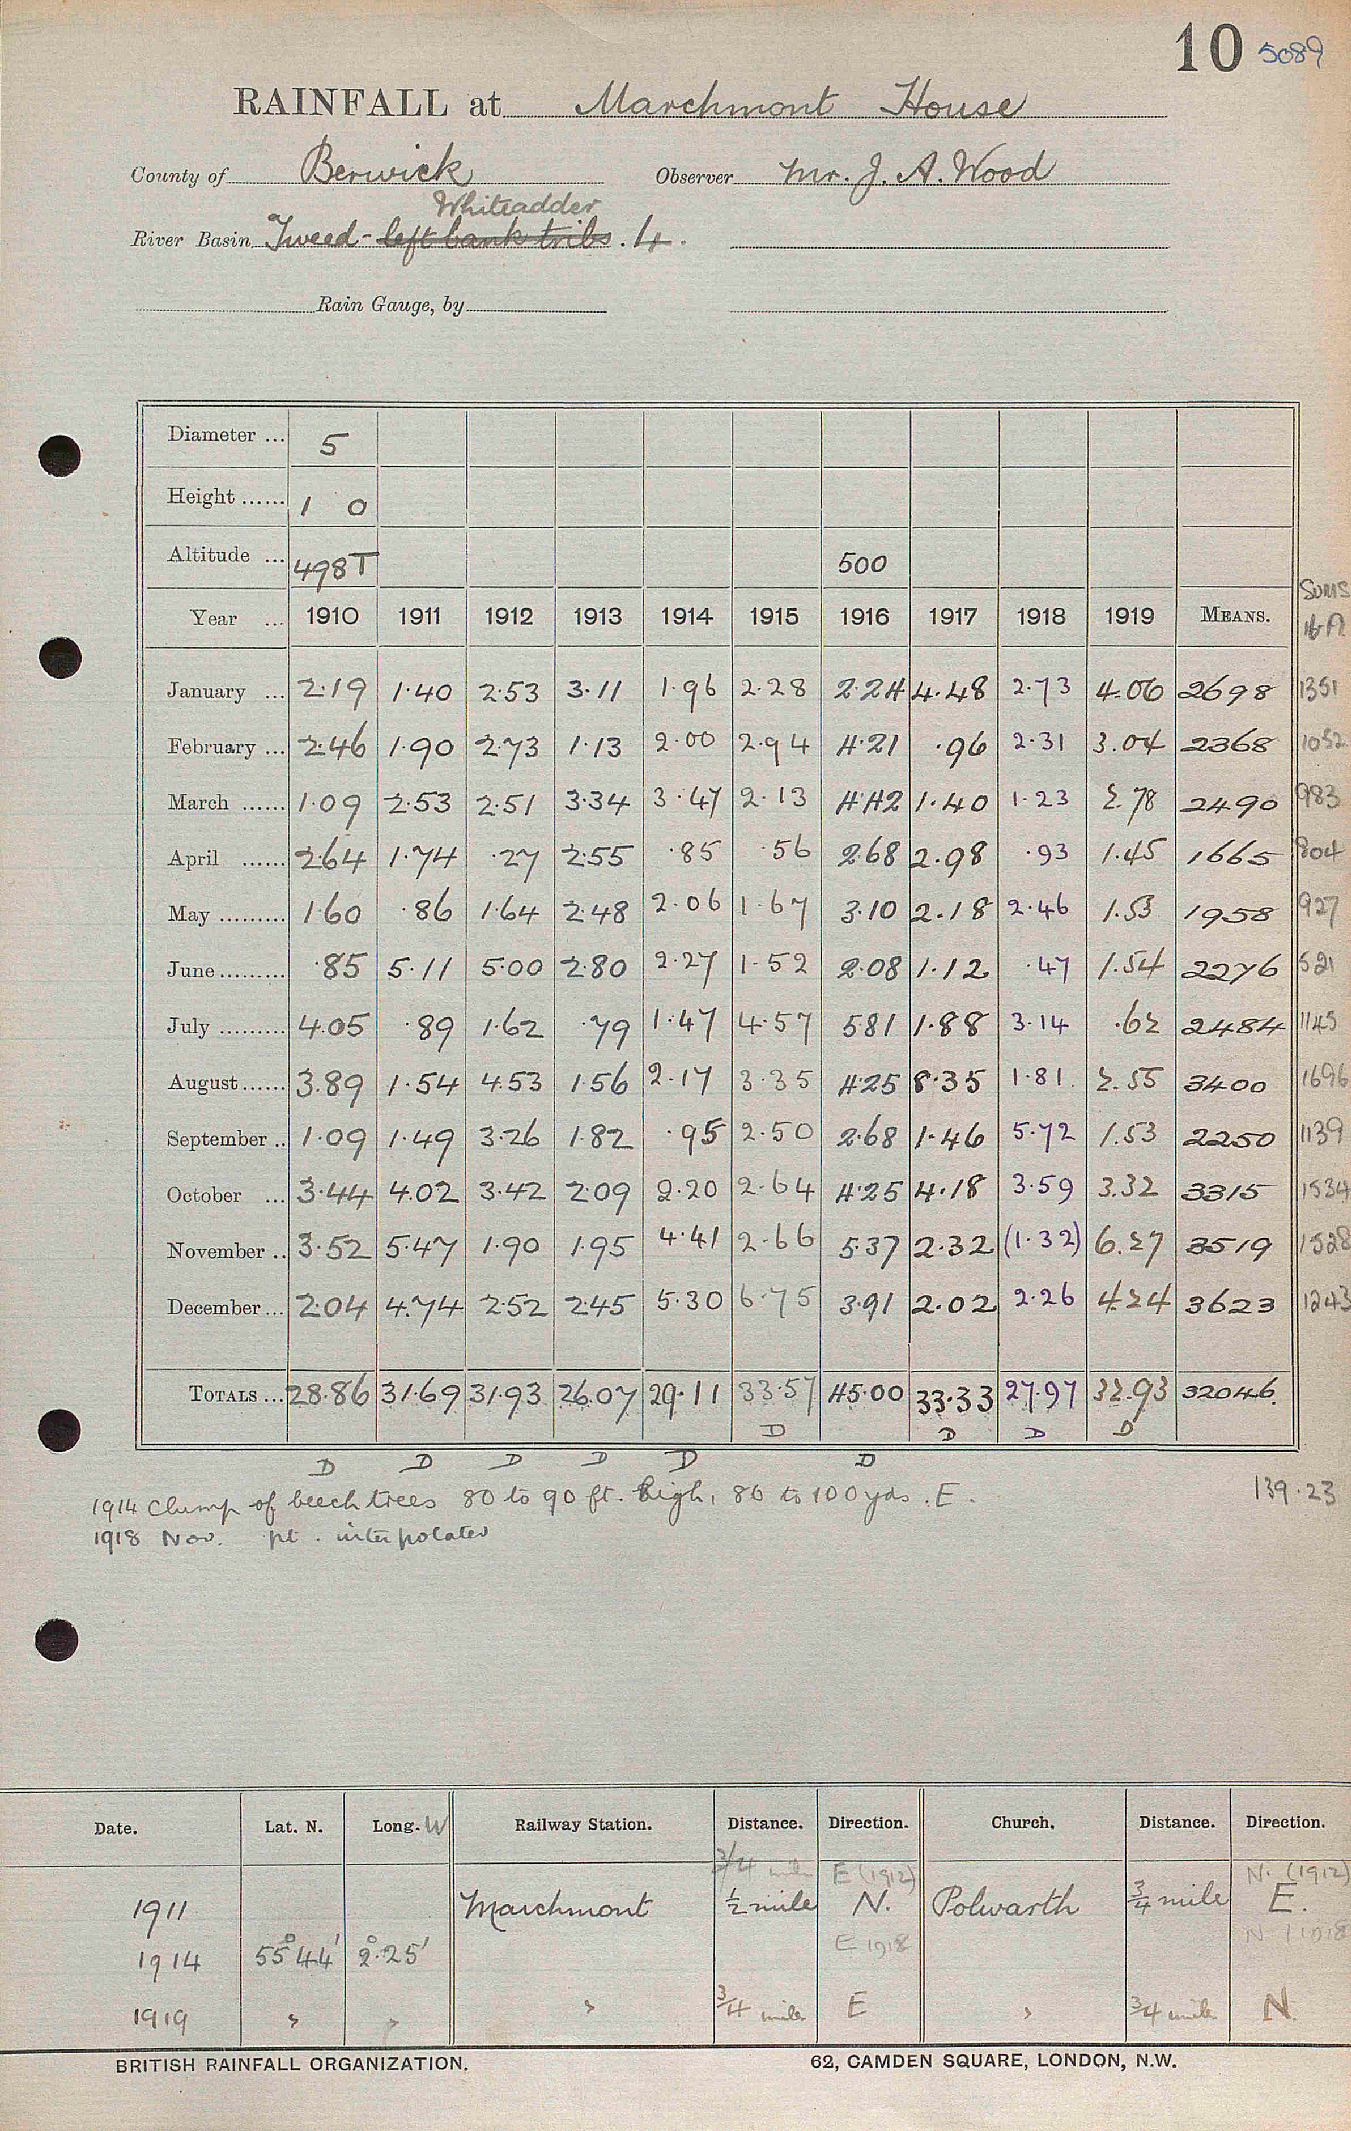 10 5089
RAINFALL at Marchmont House
County of Berwick Observer Mr. J. A. Wood
Whiteadder
River Basin Tweed - left bank tribs. 4.
Rain Gauge, by
Diameter ... 5
Height ...... 1 0
Altitude ... 498T 500
Sums
Year ... 1910 1911 1912 1913 1914 1915 1916 1917 1918 1919 MEANS.
January ... 2·19 1·40 2·53 3·11 1·96 2·28 2·24 4·48 2·73 4·06 2698 1351
February ... 2·46 1·90 2·73 1·13 2·00 2·94 4·21 ·96 2·31 3.04 2368 1052
March ...... 1·09 2·53 2·51 3·34 3·47 2·13 4·42 1·40 1·23 2.78 2490 983
April ...... 2·64 1·74 ·27 2·55 ·85 ·56 2·68 2·98 ·93 1.45 1665 804
May ......... 1·60 ·86 1·64 2·48 2·06 1·67 3·10 2·18 2·46 1.53 1958 927
June ......... ·85 5·11 5·00 2·80 2·27 1·52 2·08 1·12 ·47 1.54 2276 521
July ......... 4·05 ·89 1·62 ·79 1·47 4·57 5·81 1·88 3·14 ·62 2484 1145
August ...... 3·89 1·54 4·53 1·56 2·17 3·35 4·25 8·35 1·81 2.55 3400 1696
September .. 1·09 1·49 3·26 1·82 ·95 2·50 2·68 1·46 5·72 1.53 2250 1139
October ... 3·44 4·02 3·42 2·09 2·20 2·64 4·25 4·18 3·59 3.32 3315 1534
November .. 3·52 5·47 1·90 1·95 4·41 2·66 5·37 2·32 (1·32) 6.27 3519 1528
December ... 2·04 4·74 2·52 2·45 5·30 6·75 3·91 2·02 2·26 4.24 3623 1243
TOTALS ... 28·86 31·69 31·93 26·07 29·11 33·57 45·00 33·33 27·97 32.93 32046.
D D D D
D D D D D D
1914 Clump of beech trees 80 to 90 ft. high, 80 to 100 yds. E. 139·23
1918 Nov. pt. interpolated
Date. Lat. N. Long. W Railway Station. Distance. Direction. Church. Distance. Direction.
3/4 mile E (1912) N. (1912)
1911 Marchmont ½ mile N. Polwarth ¾ mile E.
E 1918 N (1918
1914 55° 44' 2° 25'
1919 " " " ¾ mile E " ¾ mile N.
BRITISH RAINFALL ORGANIZATION. 62, CAMDEN SQUARE, LONDON, N.W.